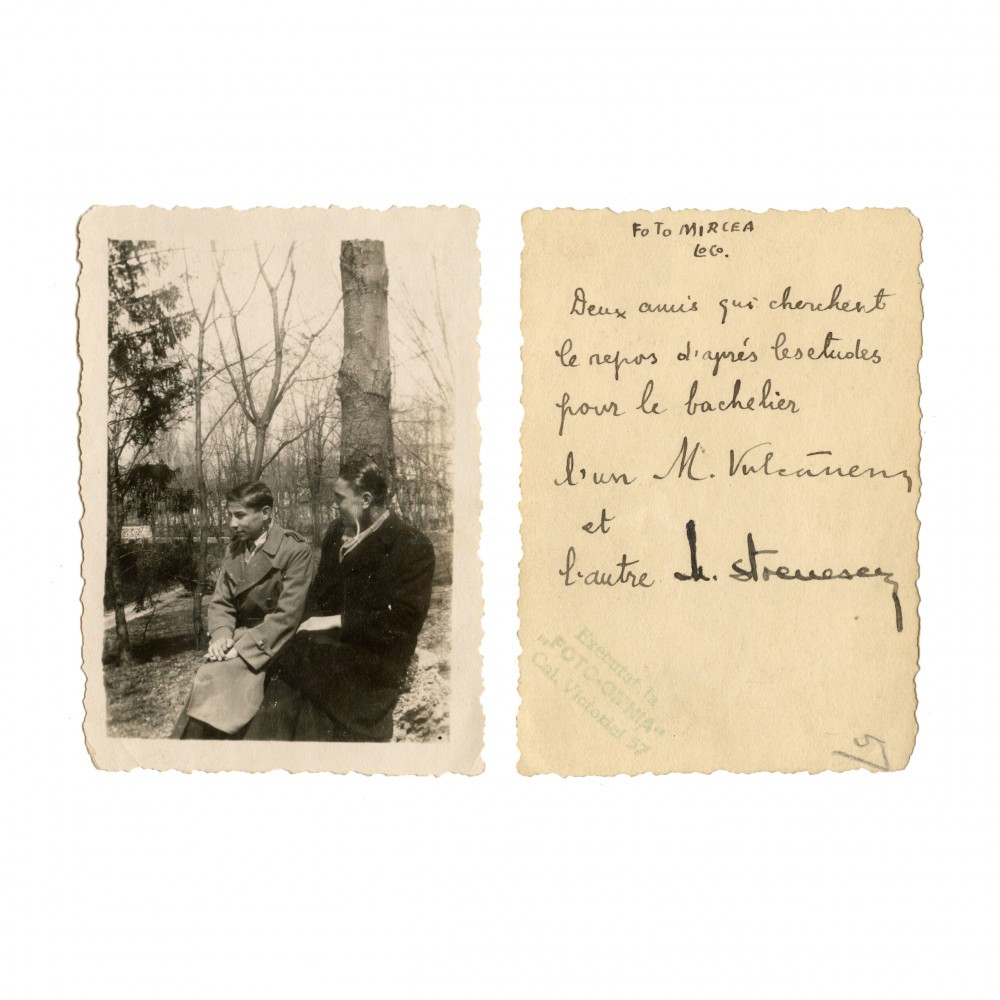 FOTO MIRCEA
LOCO.
Deux amis qui cherchent
le repos d'aprés lesetudes
pour le bachelier
l'un M. Vulcănescu
et
l'autre M. Strenescu
Executat la
„FOTO-GENIA"
Cal. Victoriei 37
5